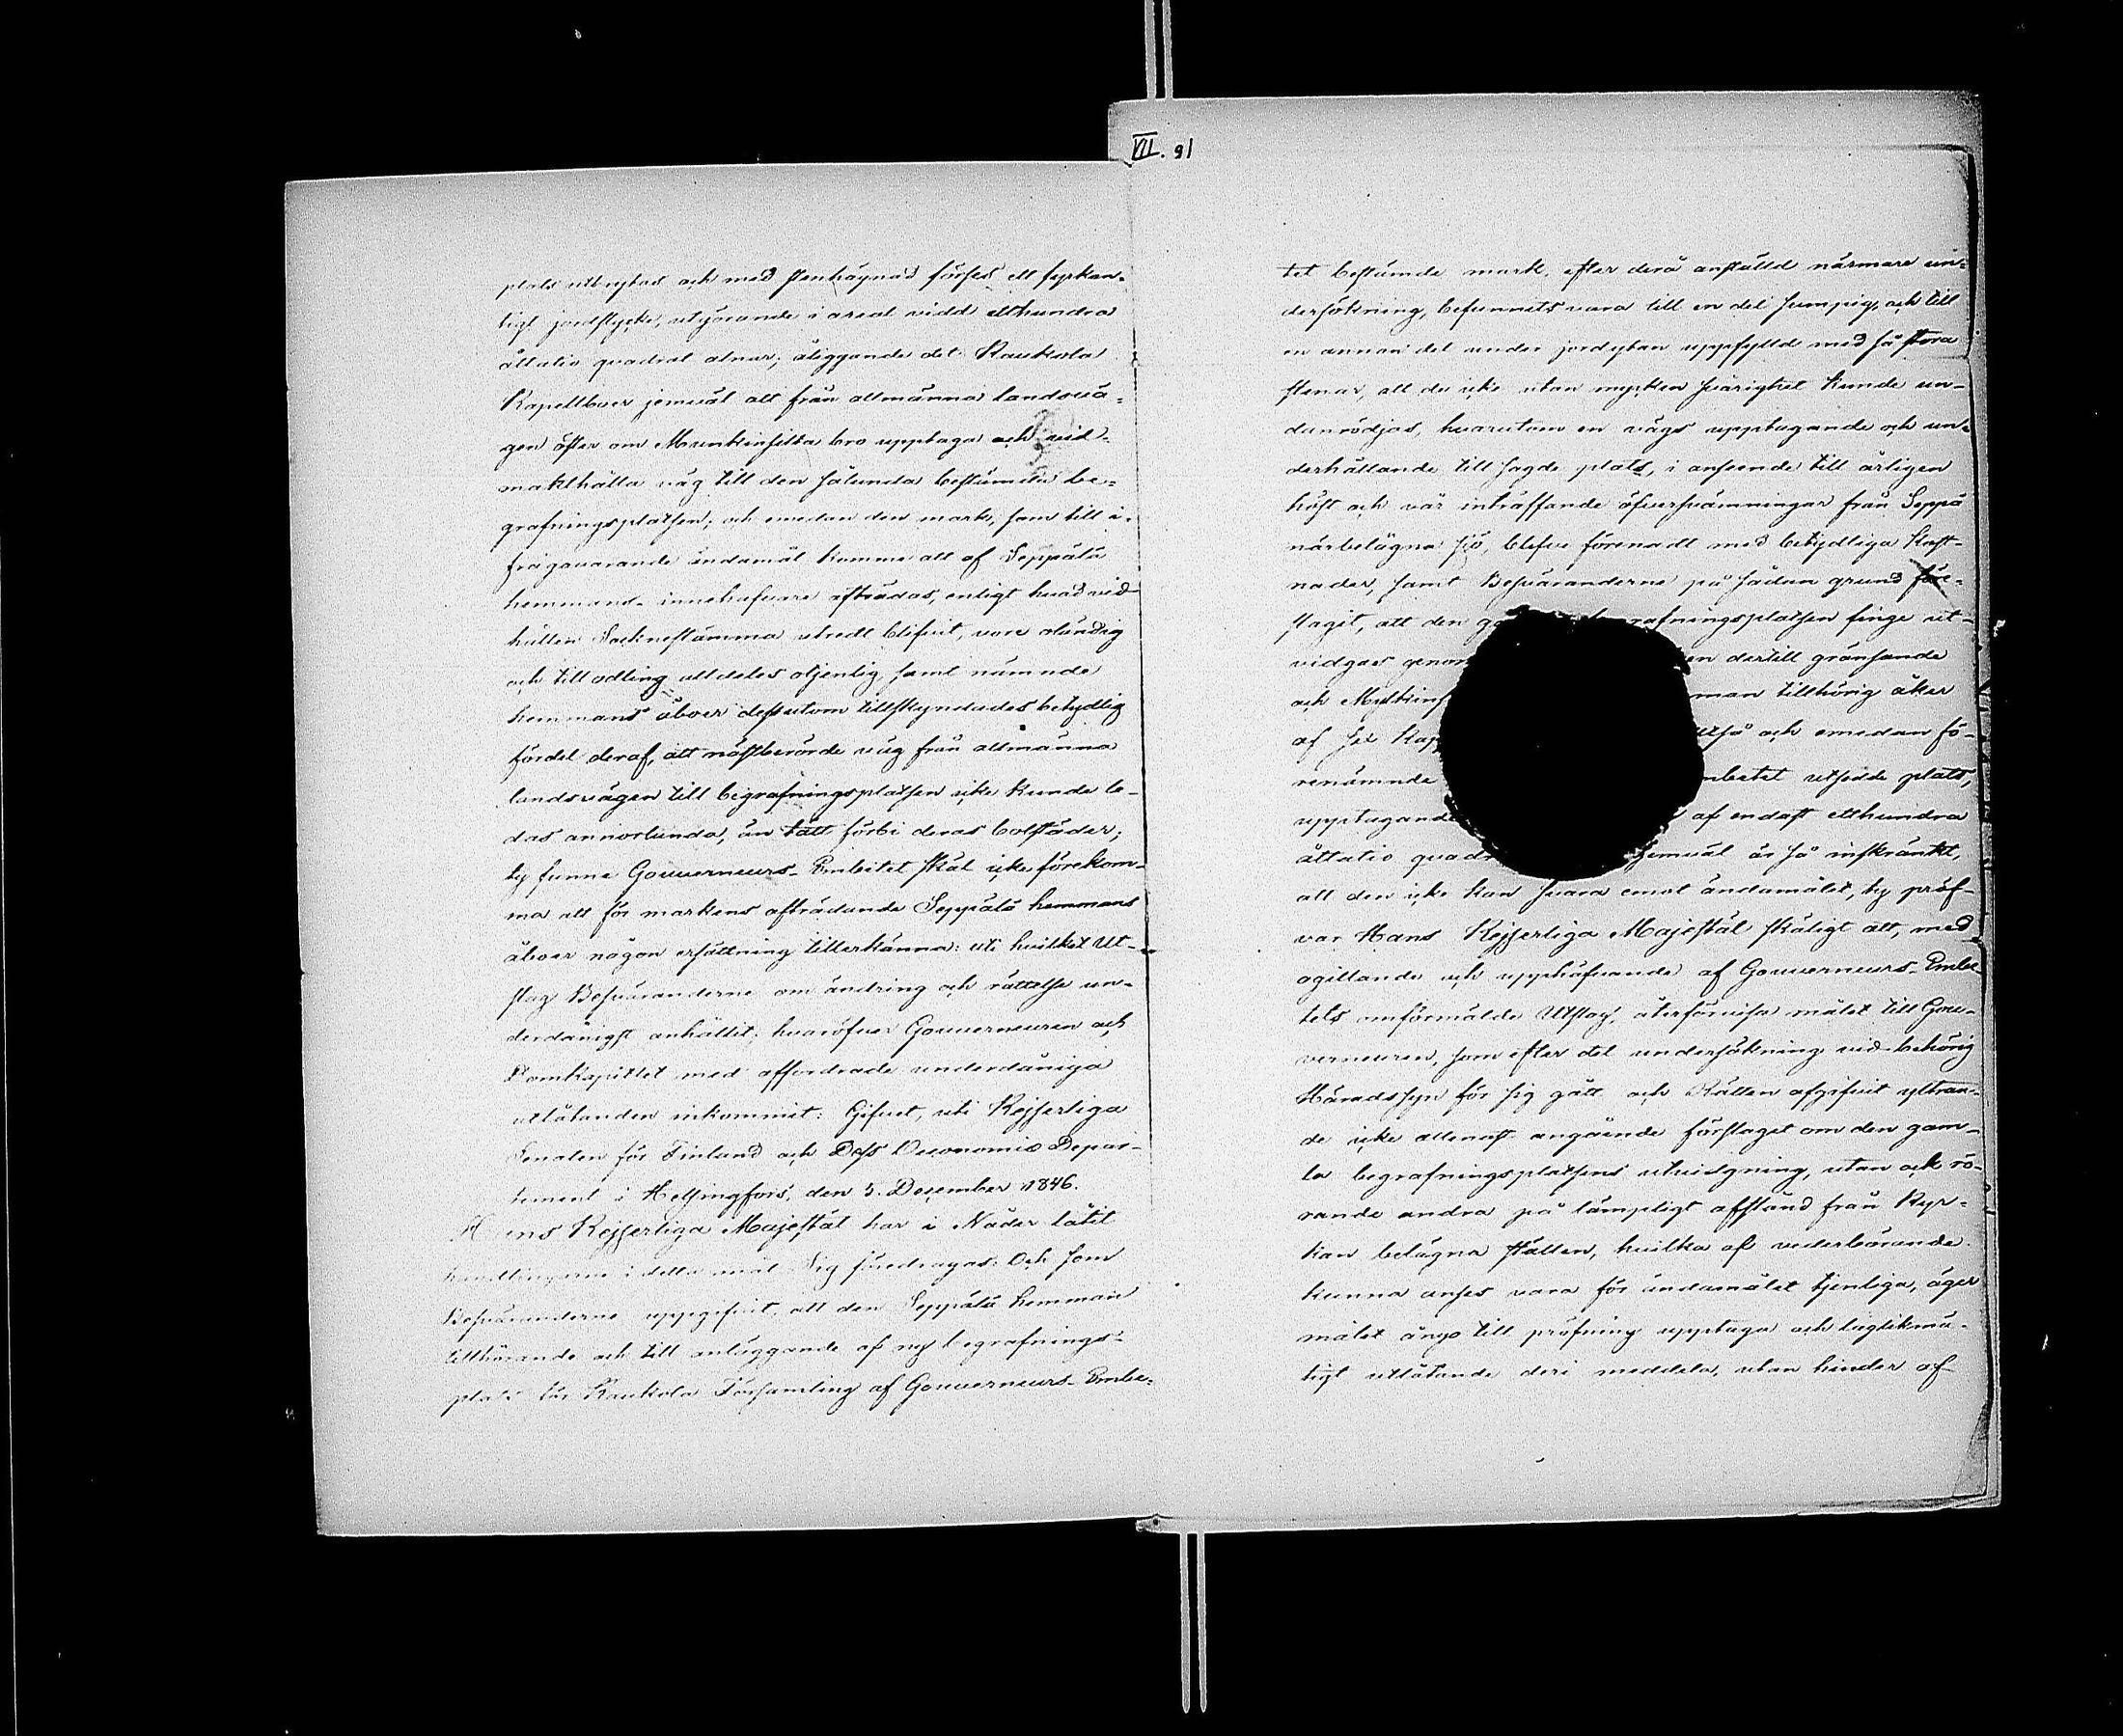 plats utbrytas och med stenhägnad förses ett fyrkan-
tigt jordstycke, utgörande i areal vidd etthundra
åttatio quadrat alnar; åliggande det Kaukola
Kapellboer jemväl att från allmänna landsvä-
gen öfter om Munkinsilta bro upptaga och vid-
makthålla väg till den sålunda bestämda be-
grafningsplatsen; och emedan den mark, som till i-
frågavarande ändamål komme att af Seppälä
hemmans innehafvare afträdas, enligt hvad vid
hållen Sockenstämma utredt blifvit, vore oländig
och till odling alldeles otjenlig, samt nämnde
hemmans åboer dessutom tillskyndades betydlig
fördel deraf, att nästberörde väg från allmänna
landsvägen till begrafningsplatsen icke kunde le-
das annorlunda, än tätt förbi deras bolstäder;
ty funne Gouverneurs-Embetet skäl icke förekom-
ma att för markens afträdande Seppälä hemmans
åboer någon ersättning tillerkänna: uti hvilket Ut-
slag Besväranderne om ändring och rättelse un-
derdånigst anhållit; hvaröfver Gouverneuren och
Domkapitlet med affordrade underdåniga
utlåtanden inkommit: Gifvet, uti Kejserliga
Senaten för Finland och Dess Oeconomie Depar-
tement i Helsingfors, den 5. December 1846.
Hans Kejserliga Majestät har i Nåder låtit
handlingarne i detta mål Sig föredragas: Och som
Besväranderne uppgifvit, att den Seppälä hemman
tillhörande och till anläggande af ny begrafnings-
plats för Kaukola Församling af Gouverneurs-Embe-
VII. 91
tet bestämde mark, efter derå anställd närmare un-
dersökning, befunnits vara till en del sumpig, och till
en annan del under jordytan uppfylld med så stora
stenar, att de icke utan mycken svårighet kunde un-
danrödjas, hvarutom en vägs upptagande och un-
derhållande till sagde plats, i anseende till årligen
höst och vår inträffande öfversvämningar från Seppä
närbelägna sjö, blefve förenadt med betydliga kost-
nader, samt Besväranderne på sådan grund före-
slagit, att den rafningsplatsen finge ut-
vidgas genom en dertill gränsande
och man tillhörig åker
af Jex Kap ltså och emedan fö-
renämnde mbetet utsedde plats,
upptagande af endast etthundra
åttatio quadr jemväl är så inskränkt,
att den icke kan svara emot ändamålet, ty pröf-
var Hans Kejserliga Majestät skäligt att, med
ogillande och upphäfvande af Gouverneurs-Embe-
tets omförmälde Utslag, återförvisa målet till Gou-
verneuren, som efter det undersökning vid behörig
Häradssyn för sig gått och Rätten afgifvit yttran-
de icke allenast angående förslaget om den gam-
la begrafningsplatsens utvidgning, utan ock rö-
rande andra på lämpligt afstånd från Kyr-
kan belägna ställen, hvilka af vederbörande
kunna anses vara för ändamålet tjenliga, äger
målet ånyo till pröfning upptaga och laglikmä-
tigt utlåtande deri meddela, utan hinder af